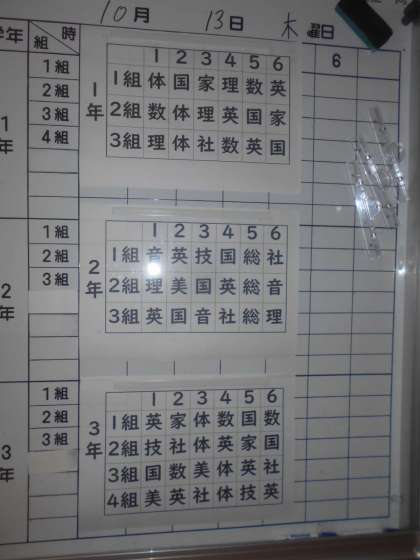 10月 13日 木曜日
学年 組 時 6
1年 1組 2組 3組 4組
1年 1 2 3 4 5 6
1組 体 国 家 理 数 英
2組 数 体 理 英 国 家
3組 理 体 社 数 英 国
2年 1組 2組 3組
2年 1 2 3 4 5 6
1組 音 英 技 国 総 社
2組 理 美 国 英 総 音
3組 英 国 音 社 総 理
3年 1組 2組 3組
3年 1 2 3 4 5 6
1組 英 家 体 数 国 数
2組 技 社 体 英 家 国
3組 国 数 美 体 英 社
4組 美 英 社 体 技 英